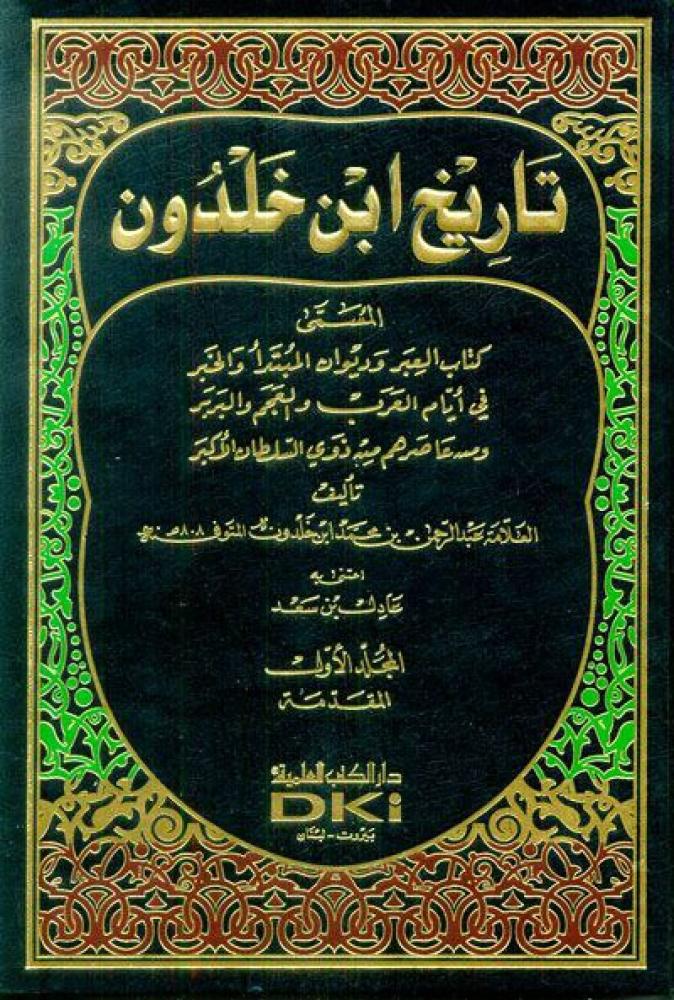 تَارِيْخ ابْن خَلْدُون
المُسَمَّى
كتاب العِبَر وَديوان المُبْتَدَأ وَالخَبَر
في أيّام العَرَب وَالعَجَم وَالبَربَر
ومن عَاصَرهم من ذَوي السُّلطان الأكبَر
تأليف
العَلّامَة عَبد الرحمن بن محمد ابن خلدون المتوفى ٨٠٨ هـ
اعتنى به
عَادل بن سَعد
المُجلّد الأوّل
المقدّمة
دار الكتب العلمية
DKi
بَيروت - لبْنَان